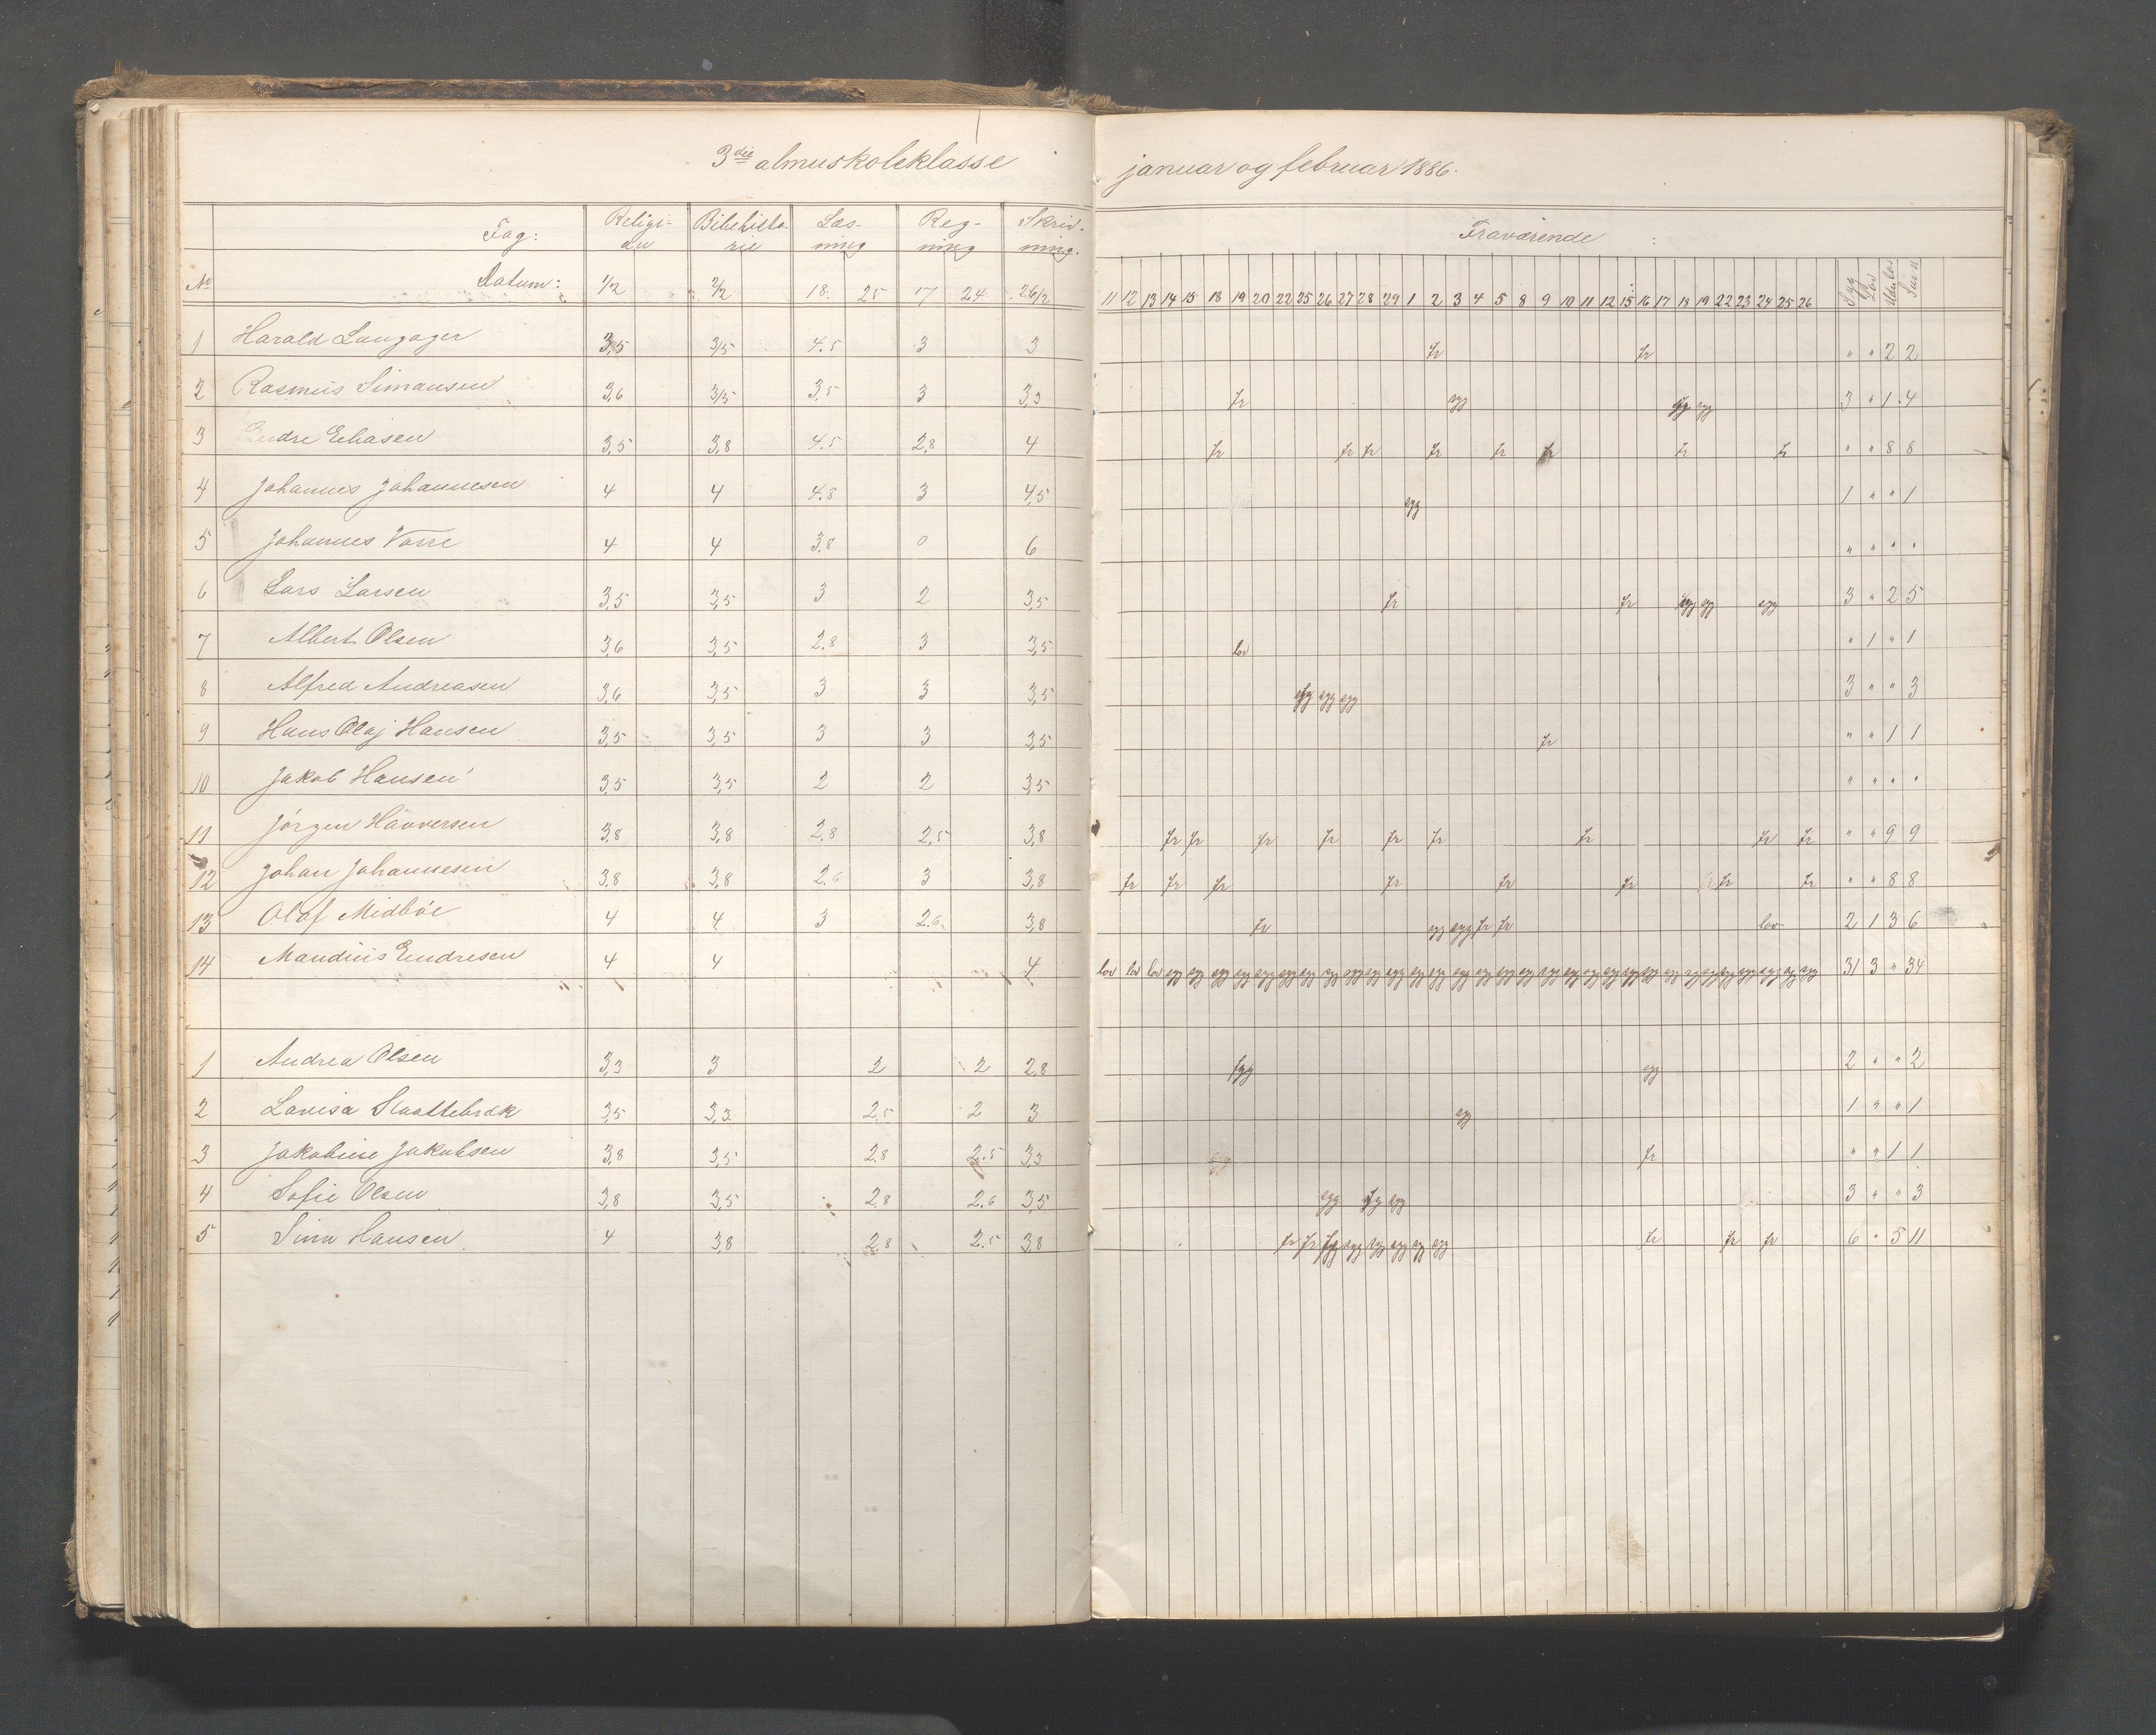 3die almuskoleklasse januar og februar 1886.
Fag: Religion Bibelhistorie Læsning Regning Skrivning. Fraværende
No Datum: 1/2 2/2 18 25 17 24 26/2 11 12 13 14 15 18 19 20 22 25 26 27 28 29 1 2 3 4 5 8 9 10 11 12 15 16 17 18 19 22 23 24 25 26 Syg Lov Sum
1 Harald Langager 3,5 3,5 4.5 3 3 fr fr " " 2 2
2 Rasmus Simonsen 3,6 3,5 3,5 3 3,3 fr syg syg syg 3 " 1 4
3 Endre Eliasen 3,5 3,8 4.5 2,8 4 fr fr fr fr fr fr fr fr " " 8 8
4 Johannes Johannesen 4 4 4.8 3 4,5 syg 1 " " 1
5 Johannes Vorre 4 4 3.8 0 6 " " " "
6 Lars Larsen 3,5 3,5 3 2 3,5 fr fr syg syg syg 3 " 2 5
7 Albert Olsen 3,6 3,5 2.8 3 3,5 lov " 1 " 1
8 Alfred Andreasen 3,6 3,5 3 3 3,5 syg syg syg 3 " " 3
9 Hans Olaj Hansen 3,5 3,5 3 3 3,5 fr " " 1 1
10 Jakob Hansen 3,5 3,5 2 2 3,5 " " " "
11 Jörgen Haaversen 3,8 3,8 2.8 2,5 3,8 fr fr fr fr fr fr fr fr fr " " 9 9
12 Johan Johannesen 3.8 3,8 2.6 3 3,8 fr fr fr fr fr fr fr fr " " 8 8
13 Olaf Midböe 4 4 3 2.6 3,8 fr syg syg fr fr lov 2 1 3 6
14 Mandius Endresen 4 4 4 lov lov lov syg syg syg syg syg syg syg syg syg syg syg syg syg syg syg syg syg syg syg syg syg syg syg syg syg syg syg syg syg syg syg 31 3 " 34
1 Andrea Olsen 3,3 3 2 2 2,8 syg syg 2 " " 2
2 Lovisa Slaattebræk 3,5 3,3 2,5 2 3 syg 1 " " 1
3 Jakobine Jakobsen 3,8 3,5 2.8 2.5 3,3 fr " " 1 1
4 Sofie Olsen 3,8 3,5 2.8 2.6 3,5 syg syg syg 3 " " 3
5 Sina Hansen 4 3,8 2.8 2.5 3,8 fr fr syg syg syg syg syg syg fr fr fr 6 " 5 11